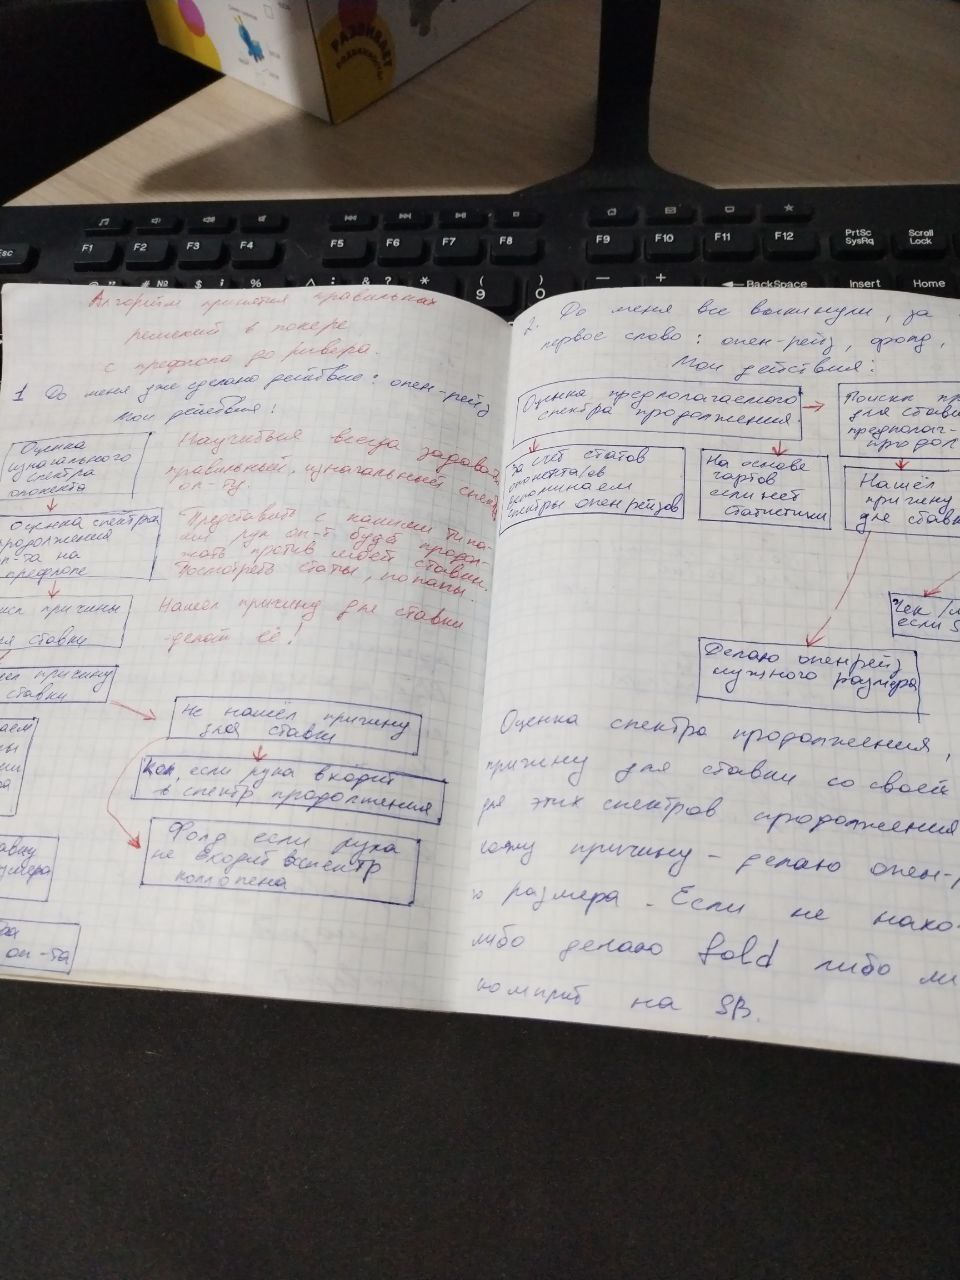 РАЗВИВАЕТ
Esc
F1 F2 F3 F4 F5 F6 F7 F8 F9 F10 F11 F12 PrtSc SysRq Scroll Lock
BackSpace Insert Home
Алгоритм принятия правильных
решений в покере
с префлопа до ривера.
1 До меня уже сделано действие: опен-рейз
Мои действия:
Оценка
изначального
спектра
опонента
Научиться всегда задавать
правильный, изначальный спектр
оп-ту.
Оценка спектра
продолжения
оп-та на
префлопе
Представить с какими типа-
ми рук оп-т будет продол-
жать против моей ставки.
Посмотреть статы, попапы.
причины
ставки
Нашёл причину для ставки
-делай её!
причину
ставки
Не нашёл причину
для ставки
Кол, если рука входит
в спектр продолжения
Фолд если рука
не входит в спектр
коллопена
оп-та
2. До меня все выкинули, за
первое слово: опен-рейз, фолд,
Мои действия:
Оценка предполагаемого
спектра продолжения.
За счёт статов
опонента/ов
вспоминаем
спектры опенрейзов
На основе
чартов
если нет
статистики
Поиски
для ставки
предполаг-
продол
Нашёл
причину
для ставки
Чек
если
Делаю опенрейз
нужного размера
Оценка спектра продолжения,
причину для ставки со своей
для этих спектров продолжения
причину – делаю опен-
размера. Если не нахо-
либо делаю fold либо
комплит на SB.